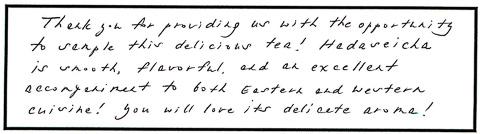 Thank you for providing us with the opportunity
to sample this delicious tea! Hadaseicha
is smooth, flavorful, and an excellent
accompaniment to both Eastern and Western
cuisine! You will love its delicate aroma!